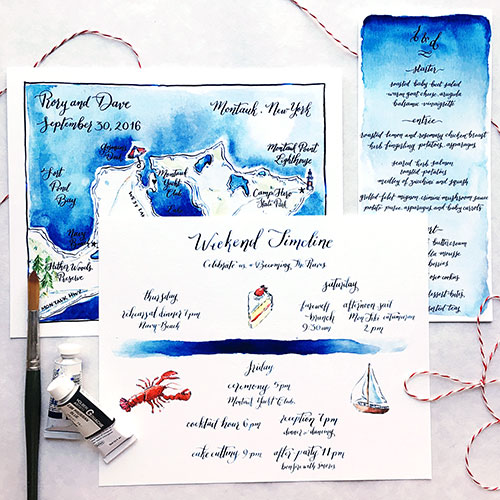 Rory and Dave
September 30, 2016
Montauk, New York
Fort
Pond
Bay
Montauk
Yacht
Club
Montauk Point
Lighthouse
Camp Hero
State Park
Hither Woods
Preserve
starter
roasted baby beet salad
warm goat cheese, arugula
balsamic vinaigrette
entrée
roasted lemon and rosemary chicken breast
herb fingerling potatoes, asparagus
seared herb salmon
roasted potatoes
medley of zucchini and squash
grilled filet mignon, crimini mushroom sauce
potato puree, asparagus and baby carrots
buttercream
mousse
berries
cookies
Weekend Timeline
Celebrate us a Becoming The
thursday
rehearsal dinner 6pm
Navy Beach
saturday
farewell
brunch
9:30am
afternoon sail
Mon Tiki catamaran
2 pm
friday
ceremony 5pm
Montauk Yacht Club
cocktail hour 6pm
reception 7pm
dinner & dancing
cake cutting 9pm
after party 11pm
bonfire with smores